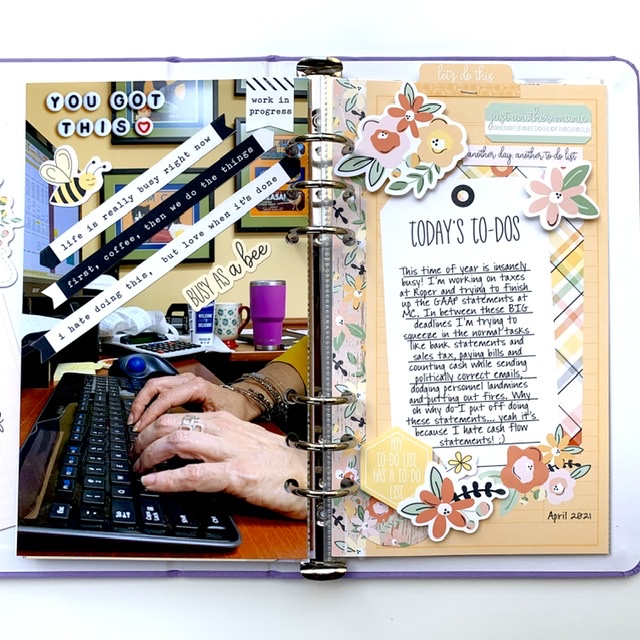 YOU GOT
THIS
work in
progress
life is really busy right now
first, coffee, then we do the things
i hate doing this, but love when it's done
BUSY AS a bee
let's do this
just another manic
another day, another to do list
TODAY'S TO-DOS
This time of year is insanely
busy! I'm working on taxes
at Roper and trying to finish
up the GAAP statements at
MC. In between these BIG
deadlines I'm trying to
squeeze in the normal tasks
like bank statements and
sales tax, paying bills and
counting cash while sending
politically correct emails,
dodging personnel landmines
and putting out fires. Why
oh why do I put off doing
these statements... yeah it's
because I hate cash flow
statements! :)
TO-DO LIST
HAS A TO-DO
LIST
April 2021